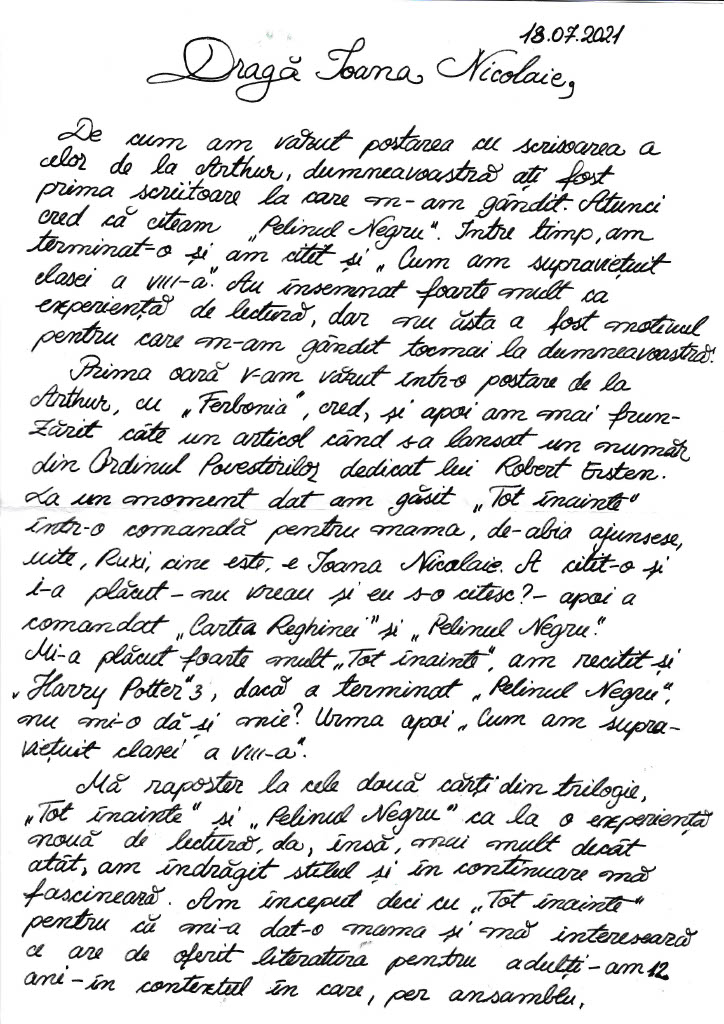 18.07.2021
Dragă Ioana Nicolaie,
De cum am văzut postarea cu scrisoarea a
celor de la Arthur, dumneavoastră ați fost
prima scriitoare la care m-am gândit. Atunci
cred că citeam „Pelinul Negru". Între timp, am
terminat-o și am citit și „Cum am supraviețuit
clasei a VIII-a". Au însemnat foarte mult ca
experiență de lectură, dar nu ăsta a fost motivul
pentru care m-am gândit tocmai la dumneavoastră.
Prima oară v-am văzut într-o postare de la
Arthur, cu „Ferbonia", cred, și apoi am mai frun-
zărit câte un articol când s-a lansat un număr
din Ordinul Povestitorilor dedicat lui Robert Ersten.
La un moment dat am găsit „Tot înainte"
într-o comandă pentru mama, de-abia ajunsese,
uite, Ruxi, cine este, e Ioana Nicolaie. A citit-o și
i-a plăcut - nu vreau și eu s-o citesc? - apoi a
comandat „Cartea Reghinei" și „Pelinul Negru".
Mi-a plăcut foarte mult „Tot înainte", am recitit și
„Harry Potter" 3, dacă a terminat „Pelinul Negru",
nu mi-o dă și mie? Urma apoi „Cum am supra-
viețuit clasei a VIII-a".
Mă raportez la cele două cărți din trilogie,
„Tot înainte" și „Pelinul Negru" ca la o experiență
nouă de lectură, da, însă, mai mult decât
atât, am îndrăgit stilul și în continuare mă
fascinează. Am început deci cu „Tot înainte"
pentru că mi-a dat-o mama și mă interesează
ce are de oferit literatura pentru adulți - am 12
ani - în contextul în care, per ansamblu,